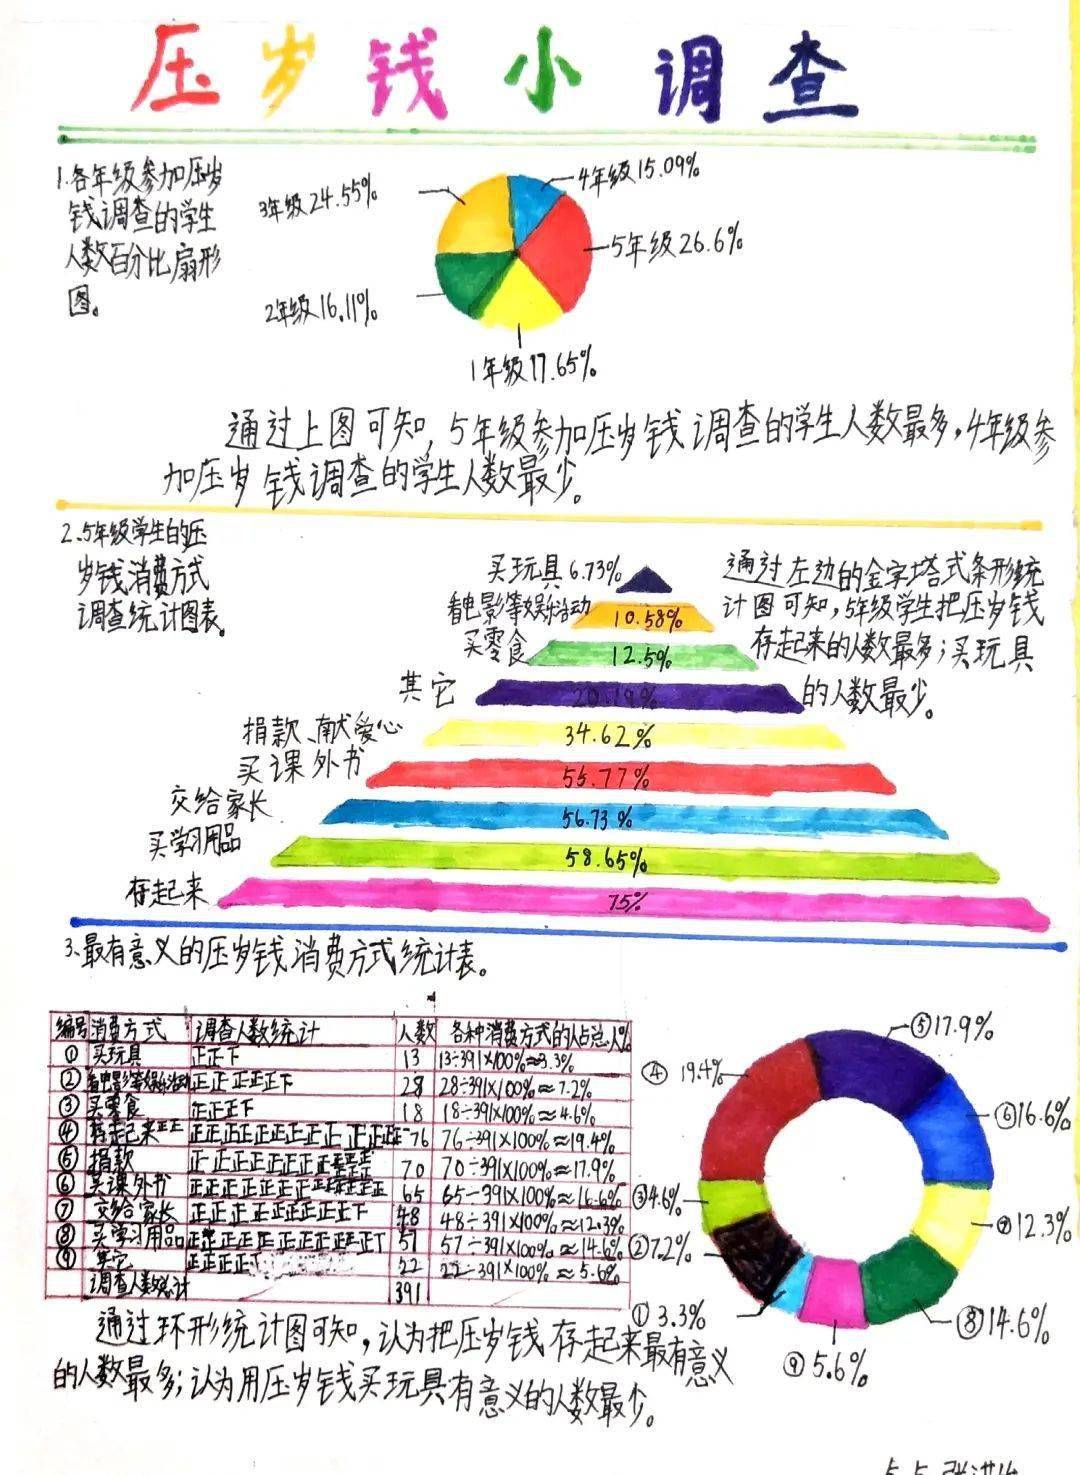 压岁钱小调查
1.各年级参加压岁
钱调查的学生
人数百分比扇形
图。
3年级24.55%
4年级15.09%
5年级26.6%
2年级16.11%
1年级17.65%
通过上图可知,5年级参加压岁钱调查的学生人数最多,4年级参
加压岁钱调查的学生人数最少。
2.5年级学生的压
岁钱消费方式
调查统计图表。
买玩具6.73%
看电影等娱乐活动 10.58%
买零食 12.5%
其它 20.19%
捐款、献爱心 34.62%
买课外书 55.77%
交给家长 56.73%
买学习用品 58.65%
存起来 75%
通过左边的金字塔式条形统
计图可知,5年级学生把压岁钱
存起来的人数最多;买玩具
的人数最少。
3.最有意义的压岁钱消费方式统计表。
编号 消费方式 调查人数统计 人数 各种消费方式的人占总人%
① 买玩具 正正下 13 13÷391×100%≈3.3%
② 看电影等娱乐活动 正正正正正下 28 28÷391×100%≈7.2%
③ 买零食 正正正下 18 18÷391×100%≈4.6%
④ 存起来 76 76÷391×100%≈19.4%
⑤ 捐款 70 70÷391×100%≈17.9%
⑥ 买课外书 65 65÷391×100%≈16.6%
⑦ 交给家长 48 48÷391×100%≈12.3%
⑧ 买学习用品 57 57÷391×100%≈14.6%
⑨ 其它 22 22÷391×100%≈5.6%
调查人数总计 391
⑤17.9%
④ 19.4%
⑥16.6%
③4.6%
⑦12.3%
②7.2%
① 3.3%
⑧14.6%
⑨5.6%
通过环形统计图可知,认为把压岁钱存起来最有意义
的人数最多;认为用压岁钱买玩具有意义的人数最少。